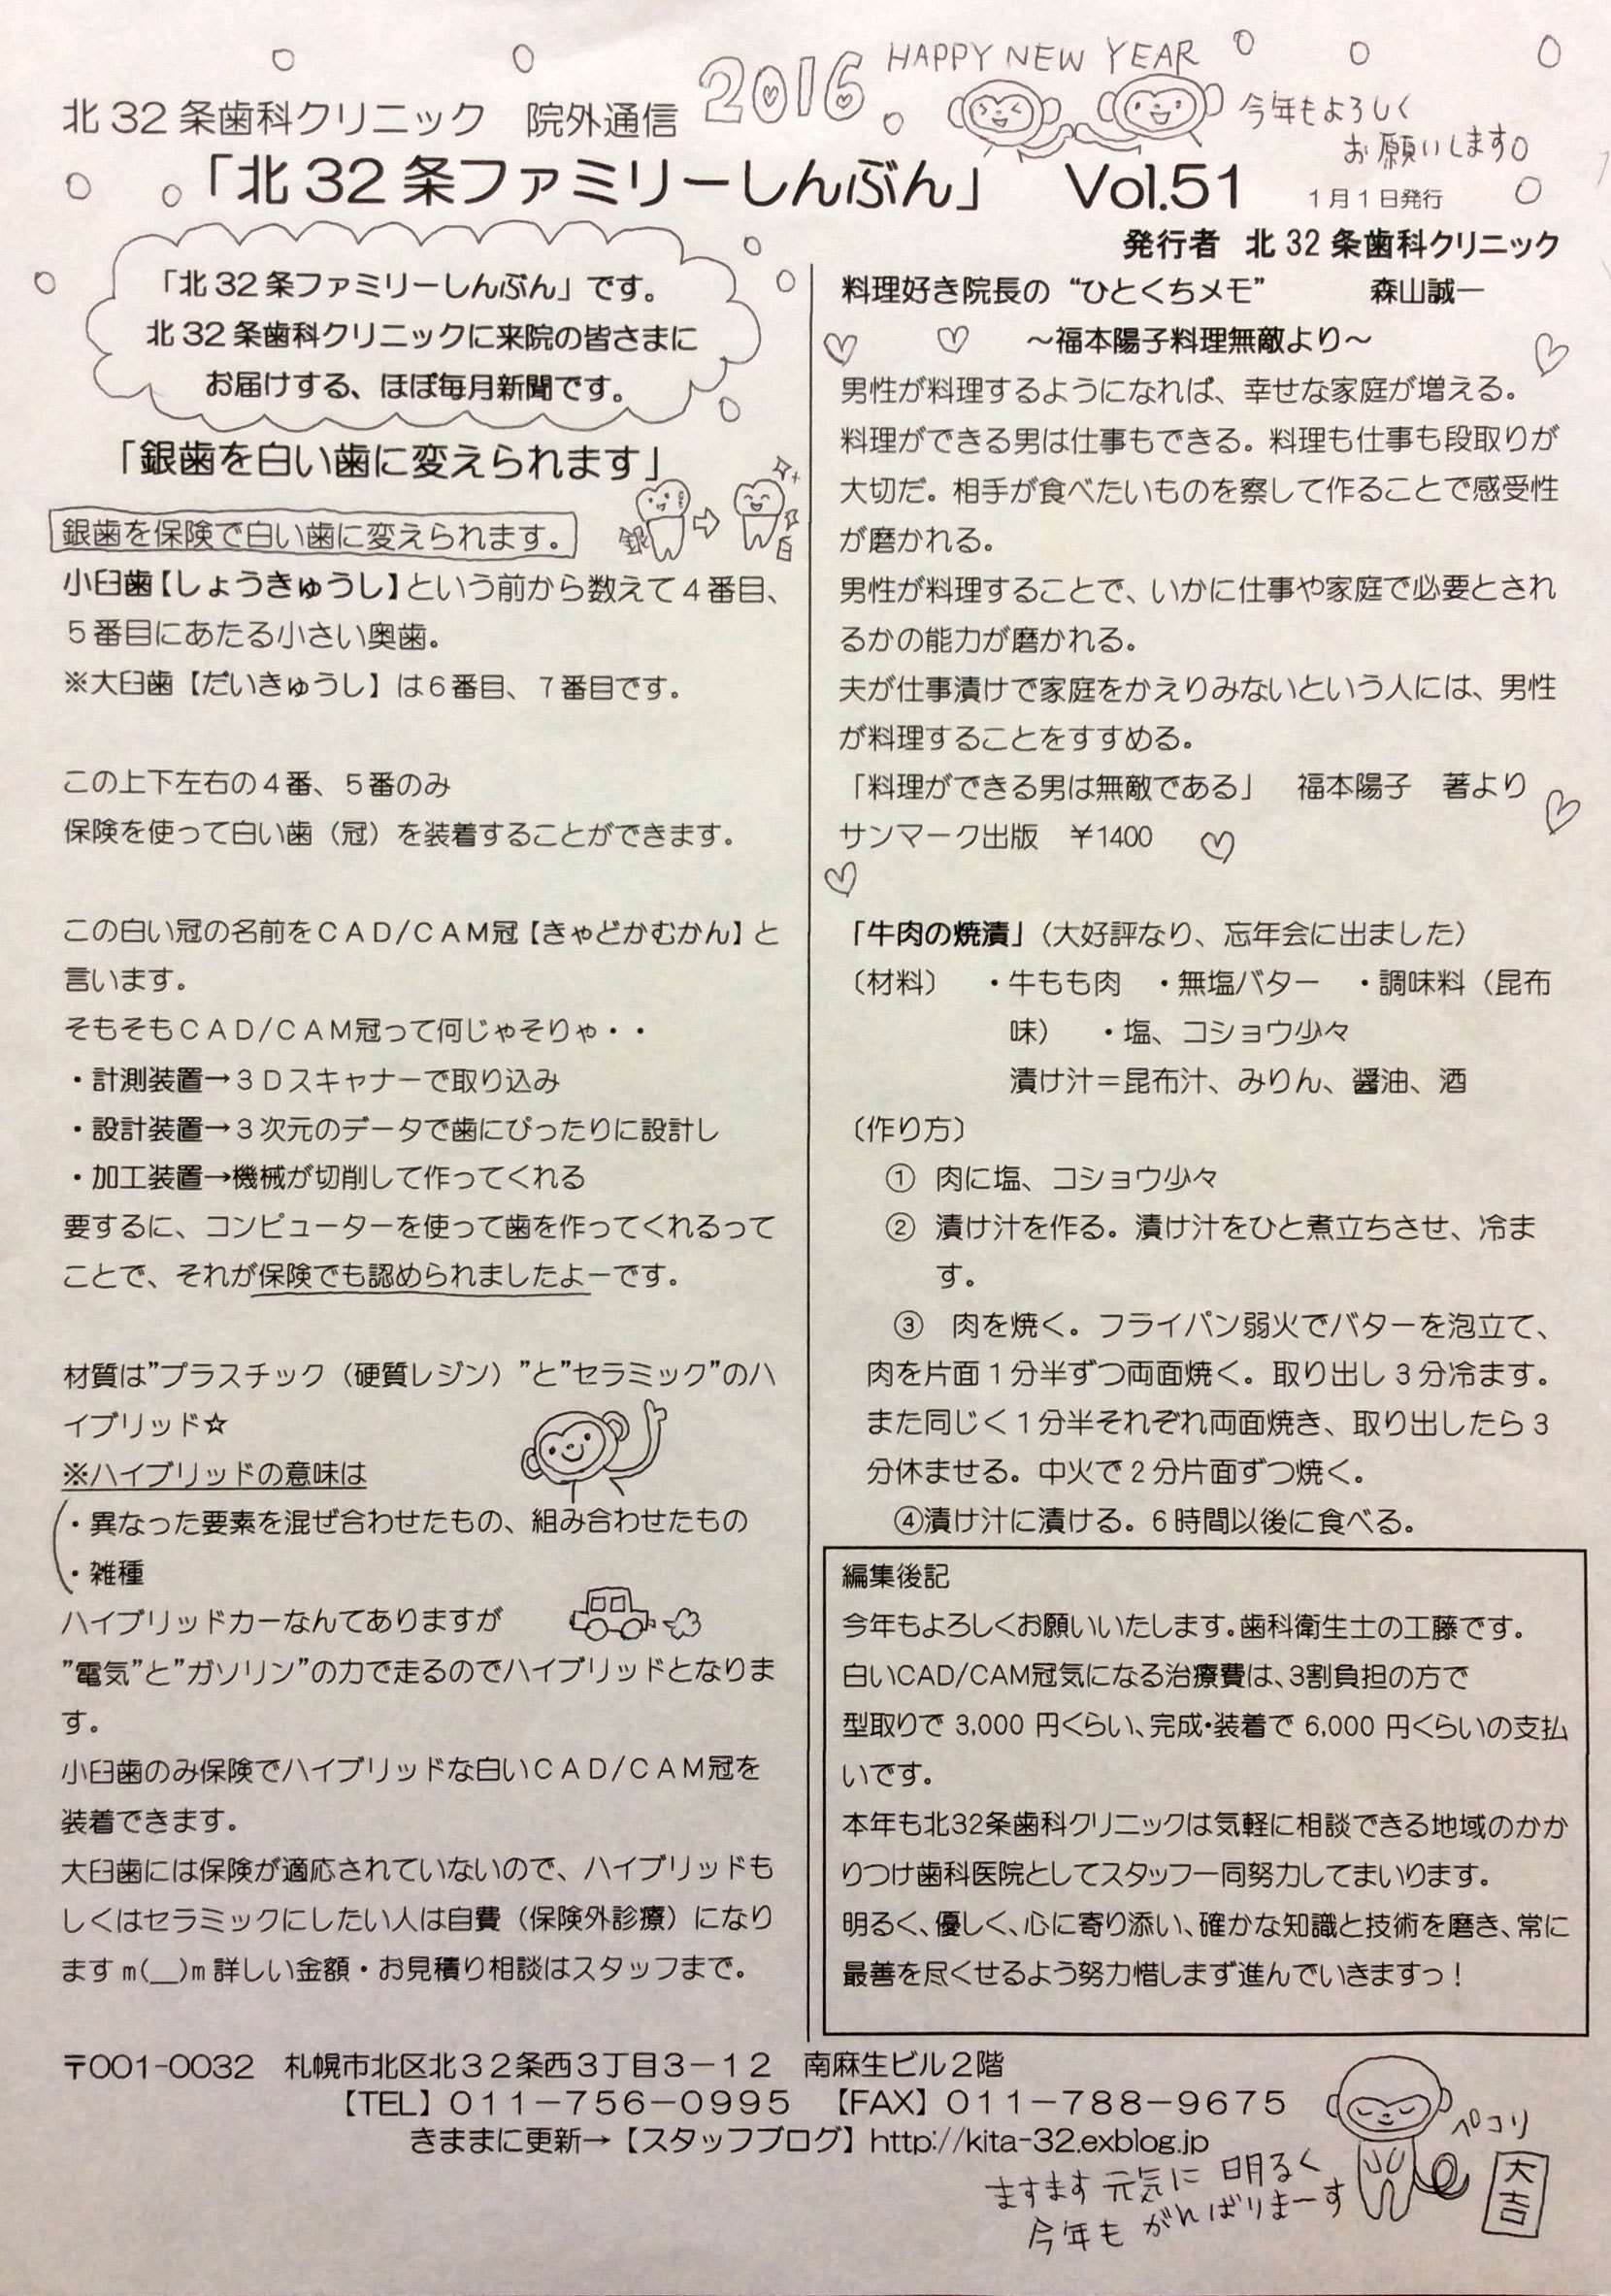 2016 HAPPY NEW YEAR
今年もよろしく
お願いします。
北32条歯科クリニック 院外通信
「北32条ファミリーしんぶん」 Vol.51 1月1日発行
発行者 北32条歯科クリニック
「北32条ファミリーしんぶん」です。
北32条歯科クリニックに来院の皆さまに
お届けする、ほぼ毎月新聞です。
「銀歯を白い歯に変えられます」
銀
白
銀歯を保険で白い歯に変えられます。
小臼歯【しょうきゅうし】という前から数えて4番目、
5番目にあたる小さい奥歯。
※大臼歯【だいきゅうし】は6番目、7番目です。
この上下左右の4番、5番のみ
保険を使って白い歯（冠）を装着することができます。
この白い冠の名前をCAD/CAM冠【きゃどかむかん】と
言います。
そもそもCAD/CAM冠って何じゃそりゃ・・
・計測装置→3Dスキャナーで取り込み
・設計装置→3次元のデータで歯にぴったりに設計し
・加工装置→機械が切削して作ってくれる
要するに、コンピューターを使って歯を作ってくれるって
ことで、それが保険でも認められましたよーです。
材質は”プラスチック（硬質レジン）”と”セラミック”のハ
イブリッド☆
※ハイブリッドの意味は
・異なった要素を混ぜ合わせたもの、組み合わせたもの
・雑種
ハイブリッドカーなんてありますが
”電気”と”ガソリン”の力で走るのでハイブリッドとなりま
す。
小臼歯のみ保険でハイブリッドな白いCAD/CAM冠を
装着できます。
大臼歯には保険が適応されていないので、ハイブリッドも
しくはセラミックにしたい人は自費（保険外診療）になり
ますm(__)m詳しい金額・お見積り相談はスタッフまで。
料理好き院長の“ひとくちメモ” 森山誠一
～福本陽子料理無敵より～
男性が料理するようになれば、幸せな家庭が増える。
料理ができる男は仕事もできる。料理も仕事も段取りが
大切だ。相手が食べたいものを察して作ることで感受性
が磨かれる。
男性が料理することで、いかに仕事や家庭で必要とされ
るかの能力が磨かれる。
夫が仕事漬けで家庭をかえりみないという人には、男性
が料理することをすすめる。
「料理ができる男は無敵である」 福本陽子 著より
サンマーク出版 ￥1400
「牛肉の焼漬」（大好評なり、忘年会に出ました）
〔材料〕 ・牛もも肉 ・無塩バター ・調味料（昆布
味） ・塩、コショウ少々
漬け汁＝昆布汁、みりん、醤油、酒
〔作り方〕
① 肉に塩、コショウ少々
② 漬け汁を作る。漬け汁をひと煮立ちさせ、冷ま
す。
③ 肉を焼く。フライパン弱火でバターを泡立て、
肉を片面1分半ずつ両面焼く。取り出し3分冷ます。
また同じく1分半それぞれ両面焼き、取り出したら3
分休ませる。中火で2分片面ずつ焼く。
④漬け汁に漬ける。6時間以後に食べる。
編集後記
今年もよろしくお願いいたします。歯科衛生士の工藤です。
白いCAD/CAM冠気になる治療費は、3割負担の方で
型取りで 3,000 円くらい、完成・装着で 6,000 円くらいの支払
いです。
本年も北32条歯科クリニックは気軽に相談できる地域のかか
りつけ歯科医院としてスタッフ一同努力してまいります。
明るく、優しく、心に寄り添い、確かな知識と技術を磨き、常に
最善を尽くせるよう努力惜しまず進んでいきますっ！
〒001-0032 札幌市北区北32条西3丁目3－12 南麻生ビル2階
【TEL】011－756－0995 【FAX】011－788－9675
きままに更新→【スタッフブログ】http://kita-32.exblog.jp
ペコリ
ますます元気に明るく
今年もがんばりまーす
大吉